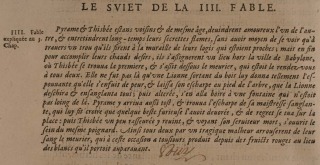 LE SVIET DE LA IIII. FABLE.
IIII. Fable expliquée au 3. Chap.
Pyrame & Thisbée estans voisins & de mesme âge, deuindrent amoureux l'vn de l'au-
tre, & entretindrent long-temps leurs secrettes flames, sans auoir moyen de se voir qu'à
trauers vn trou qu'ils firent à la muraille de leurs logis qui estoient proches; mais en fin
pour accomplir leurs chauds desirs, ils s'assignerent vn lieu hors la ville de Babylon,
où Thisbée se trouua la premiere, & s'estoit assise dessous le meurier, qui estoit le rendez-vous
à tous deux. Elle ne fut pas là qu'vne Lionne sortant du bois luy donna tellement l'es-
pouuante qu'elle s'enfuit de peur, & laissa son escharpe au pied de l'arbre, que la Lionne
deschira & ensanglanta tout; puis alterée, s'en alla boire à vne fontaine qui n'estoit
pas loing de là. Pyrame y arriua aussi tost, & trouua l'escharpe de sa maistresse sanglan-
te, qui luy fit croire que quelque beste furieuse l'auoit deuorée, & de regret se tua sur la
place: puis Thisbée vn peu rasseurée y reuint, & voyant son seruiteur mort, s'ouurit le
sein du mesme poignard. Ainsi tous deux par vn tragique malheur arrouserent de leur
sang le meurier, qui à ceste occasion a tousiours produit depuis des fruicts rouges au lieu
des blancs qu'il portoit auparauant.